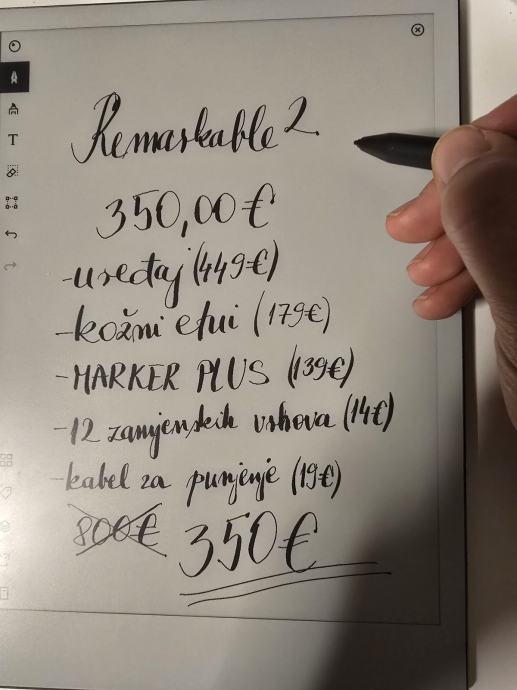 Remarkable 2
350,00€
-uređaj (449€)
-kožni etui (179€)
-MARKER PLUS (139€)
-12 zamjenskih vrhova (14€)
-kabel za punjenje (19€)
800€ 350€